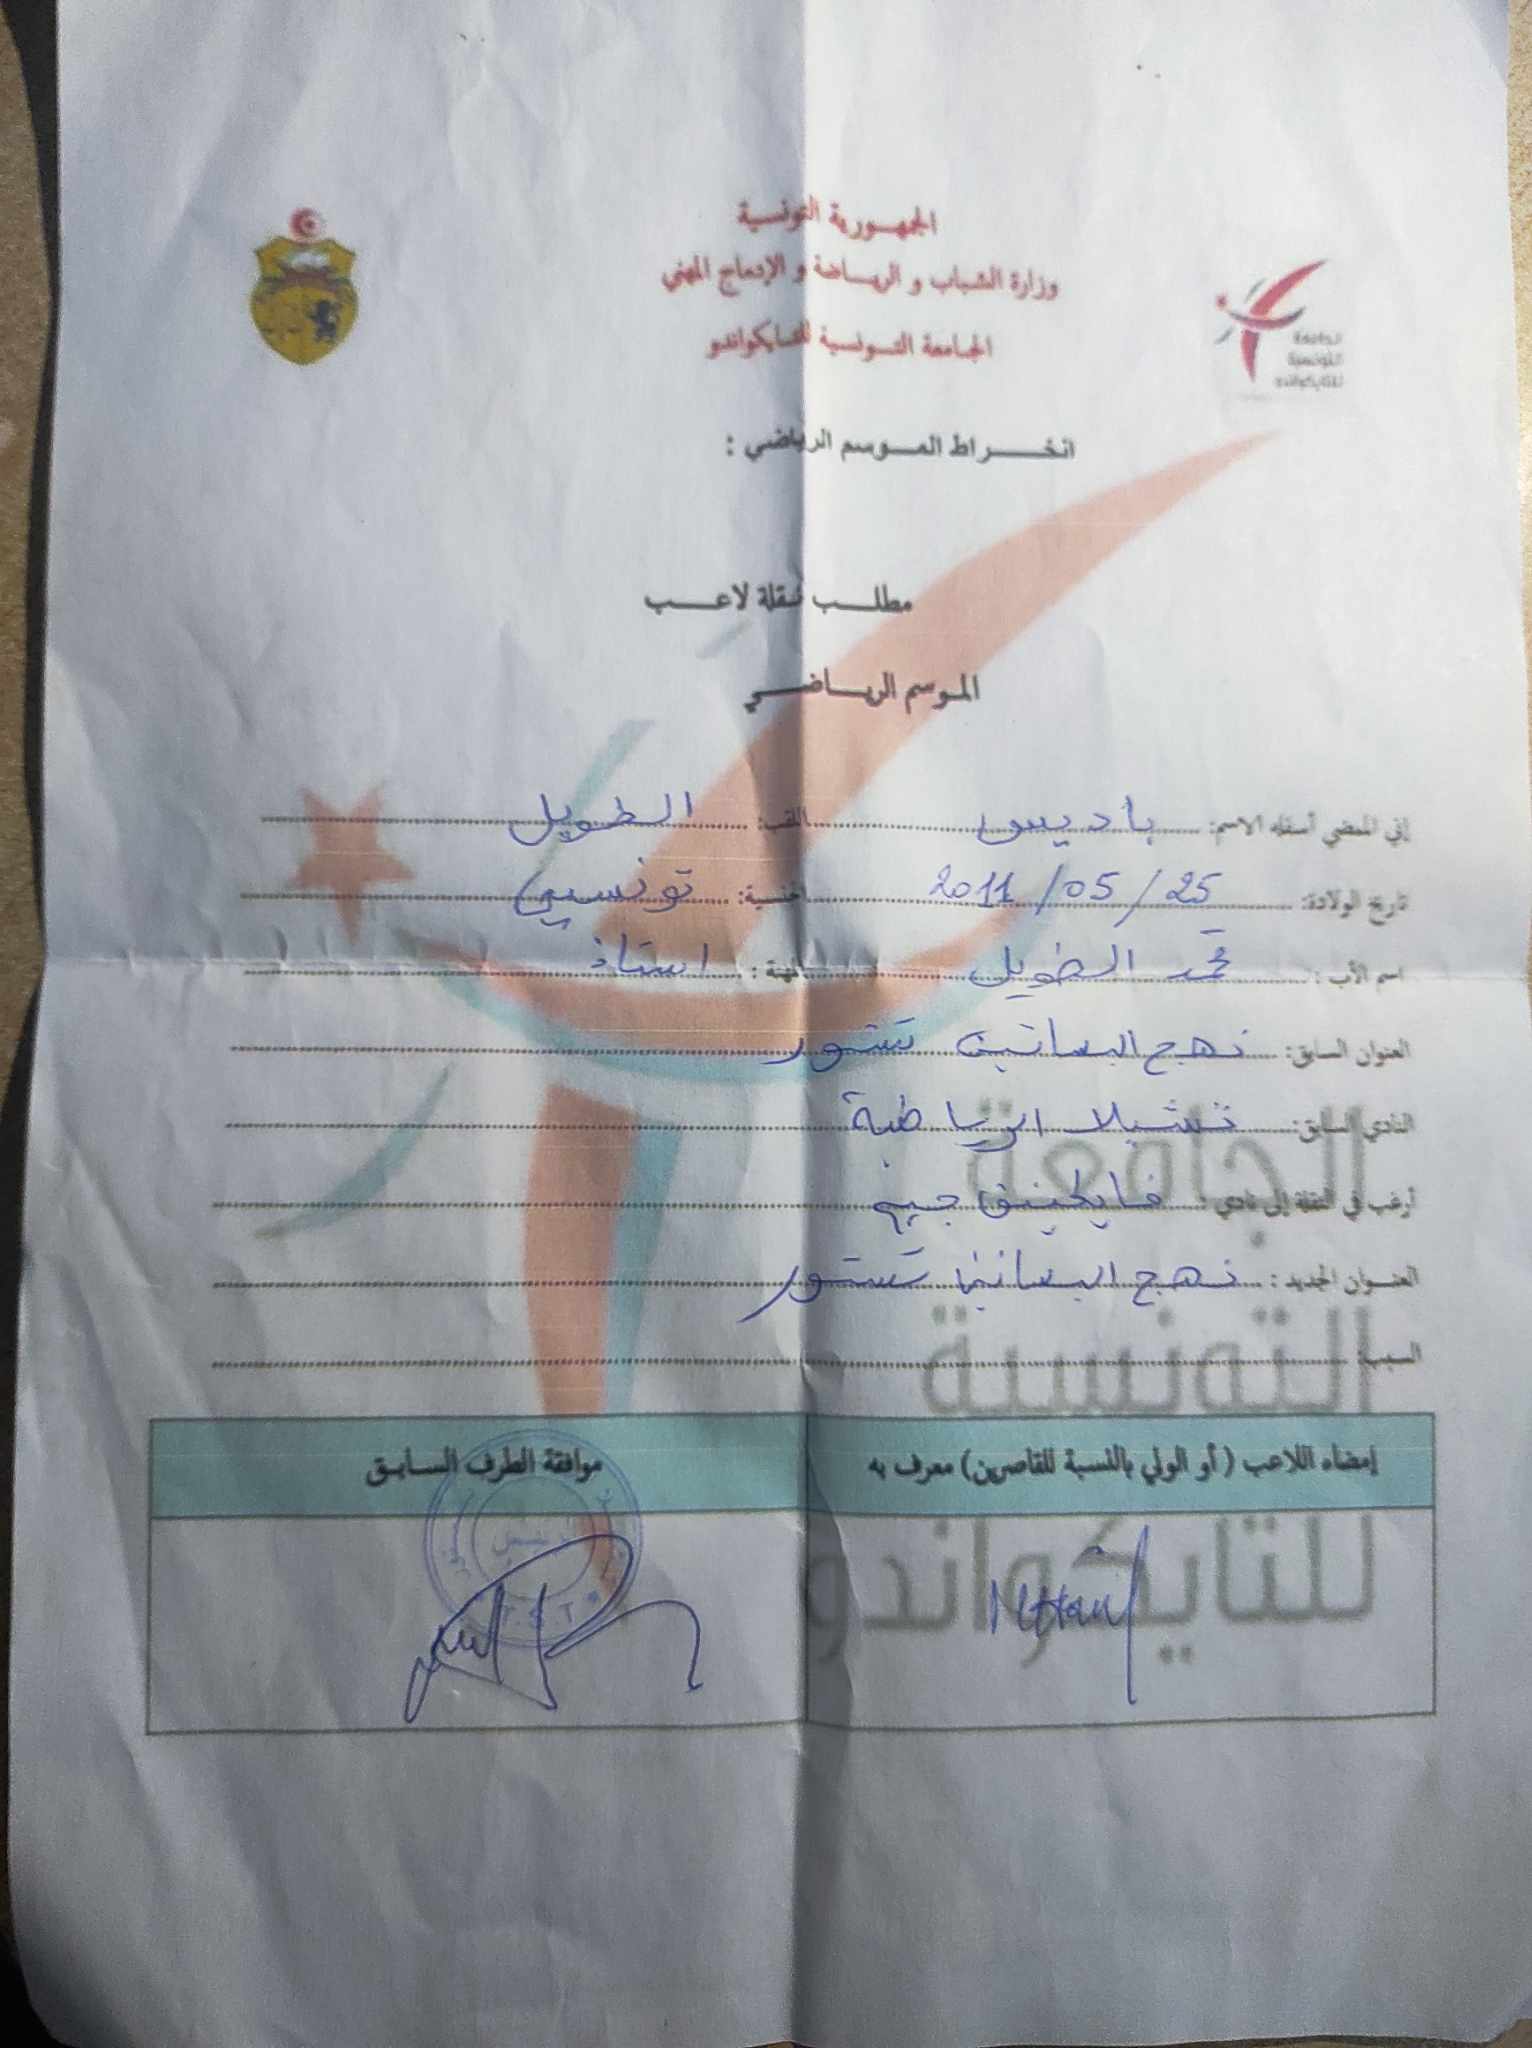 الجمهورية التونسية
وزارة الشباب و الرياضة و الإدماج المهني
الجامعة التونسية للتايكواندو
الجامعة
التونسية
للتايكواندو
انخراط الموسم الرياضي :
مطلب نقلة لاعب
الموسم الرياضي
إني الممضي أسفله الاسم: باديس اللقب: الطويل
تاريخ الولادة: 25 / 05 / 2011 الجنسية: تونسي
اسم الأب : محمد الطويل المهنة : استاذ
العنوان السابق: نهج البساتين تستور
النادي السابق: الرياضية
أرغب في النقلة إلى نادي : فايتينق جيم
العنوان الجديد : نهج البساتين تستور
السبب:
إمضاء اللاعب ( أو الولي بالنسبة للقاصرين) معرف به
موافقة الطرف السابق
الجامعة
التونسية
للتايكواندو